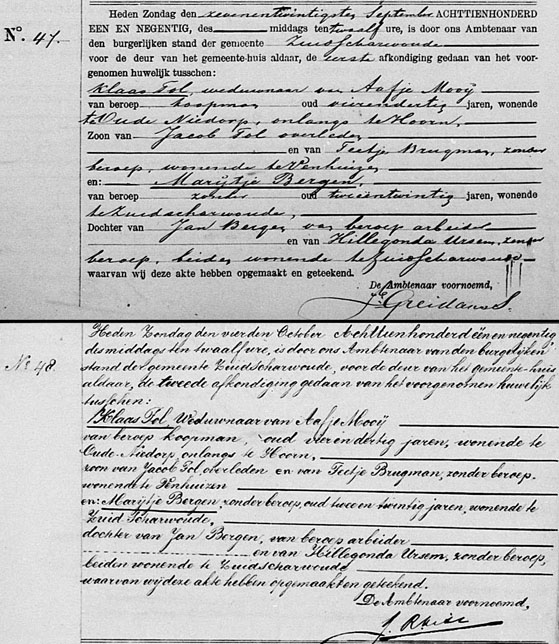 Heden Zondag den zevenentwintigsten September ACHTTIENHONDERD
No. 47. EEN EN NEGENTIG, des middags ten twaalf ure, is door ons Ambtenaar van
den burgerlijken stand der gemeente Zuidscharwoude
voor de deur van het gemeente-huis aldaar, de eerste afkondiging gedaan van het voor-
genomen huwelijk tusschen:
Klaas Tol, weduwnaar van Aafje Mooij
van beroep koopman oud vierendertig jaren, wonende
te Oude Niedorp, onlangs te Hoorn,
Zoon van Jacob Tol overleden
en van Teetje Brugman, zonder
beroep, wonende te Venhuizen
en: Marijtje Bergen,
van beroep zonder oud tweeëntwintig jaren, wonende
te Zuidscharwoude,
Dochter van Jan Bergen van beroep arbeider
en van Hillegonda Ursem, zonder
beroep, beiden wonende te Zuidscharwoude
waarvan wij deze akte hebben opgemaakt en geteekend.
De Ambtenaar voornoemd,
Greidanus
Heden Zondag den vierden October Achttienhonderd één en negentig,
No 48. des middags ten twaalf ure, is door ons Ambtenaar van den burgelijken
stand der gemeente Zuidscharwoude, voor de deur van het gemeente-huis
aldaar, de tweede afkondiging gedaan van het voorgenomen huwelijk
tusschen:
Klaas Tol Weduwnaar van Aafje Mooij
van beroep koopman, oud vierendertig jaren, wonende te
Oude-Niedorp, onlangs te Hoorn,
zoon van Jacob Tol, overleden en van Teetje Brugman, zonder beroep,
wonende te Venhuizen
en: Marijtje Bergen, zonder beroep, oud twee en twintig jaren, wonende te
Zuid Scharwoude,
dochter van Jan Bergen, van beroep arbeider
en van Hillegonda Ursem, zonder beroep,
beiden wonende te Zuidscharwoude
waarvan wij deze akte hebben opgemaakt en geteekend.
De Ambtenaar voornoemd,